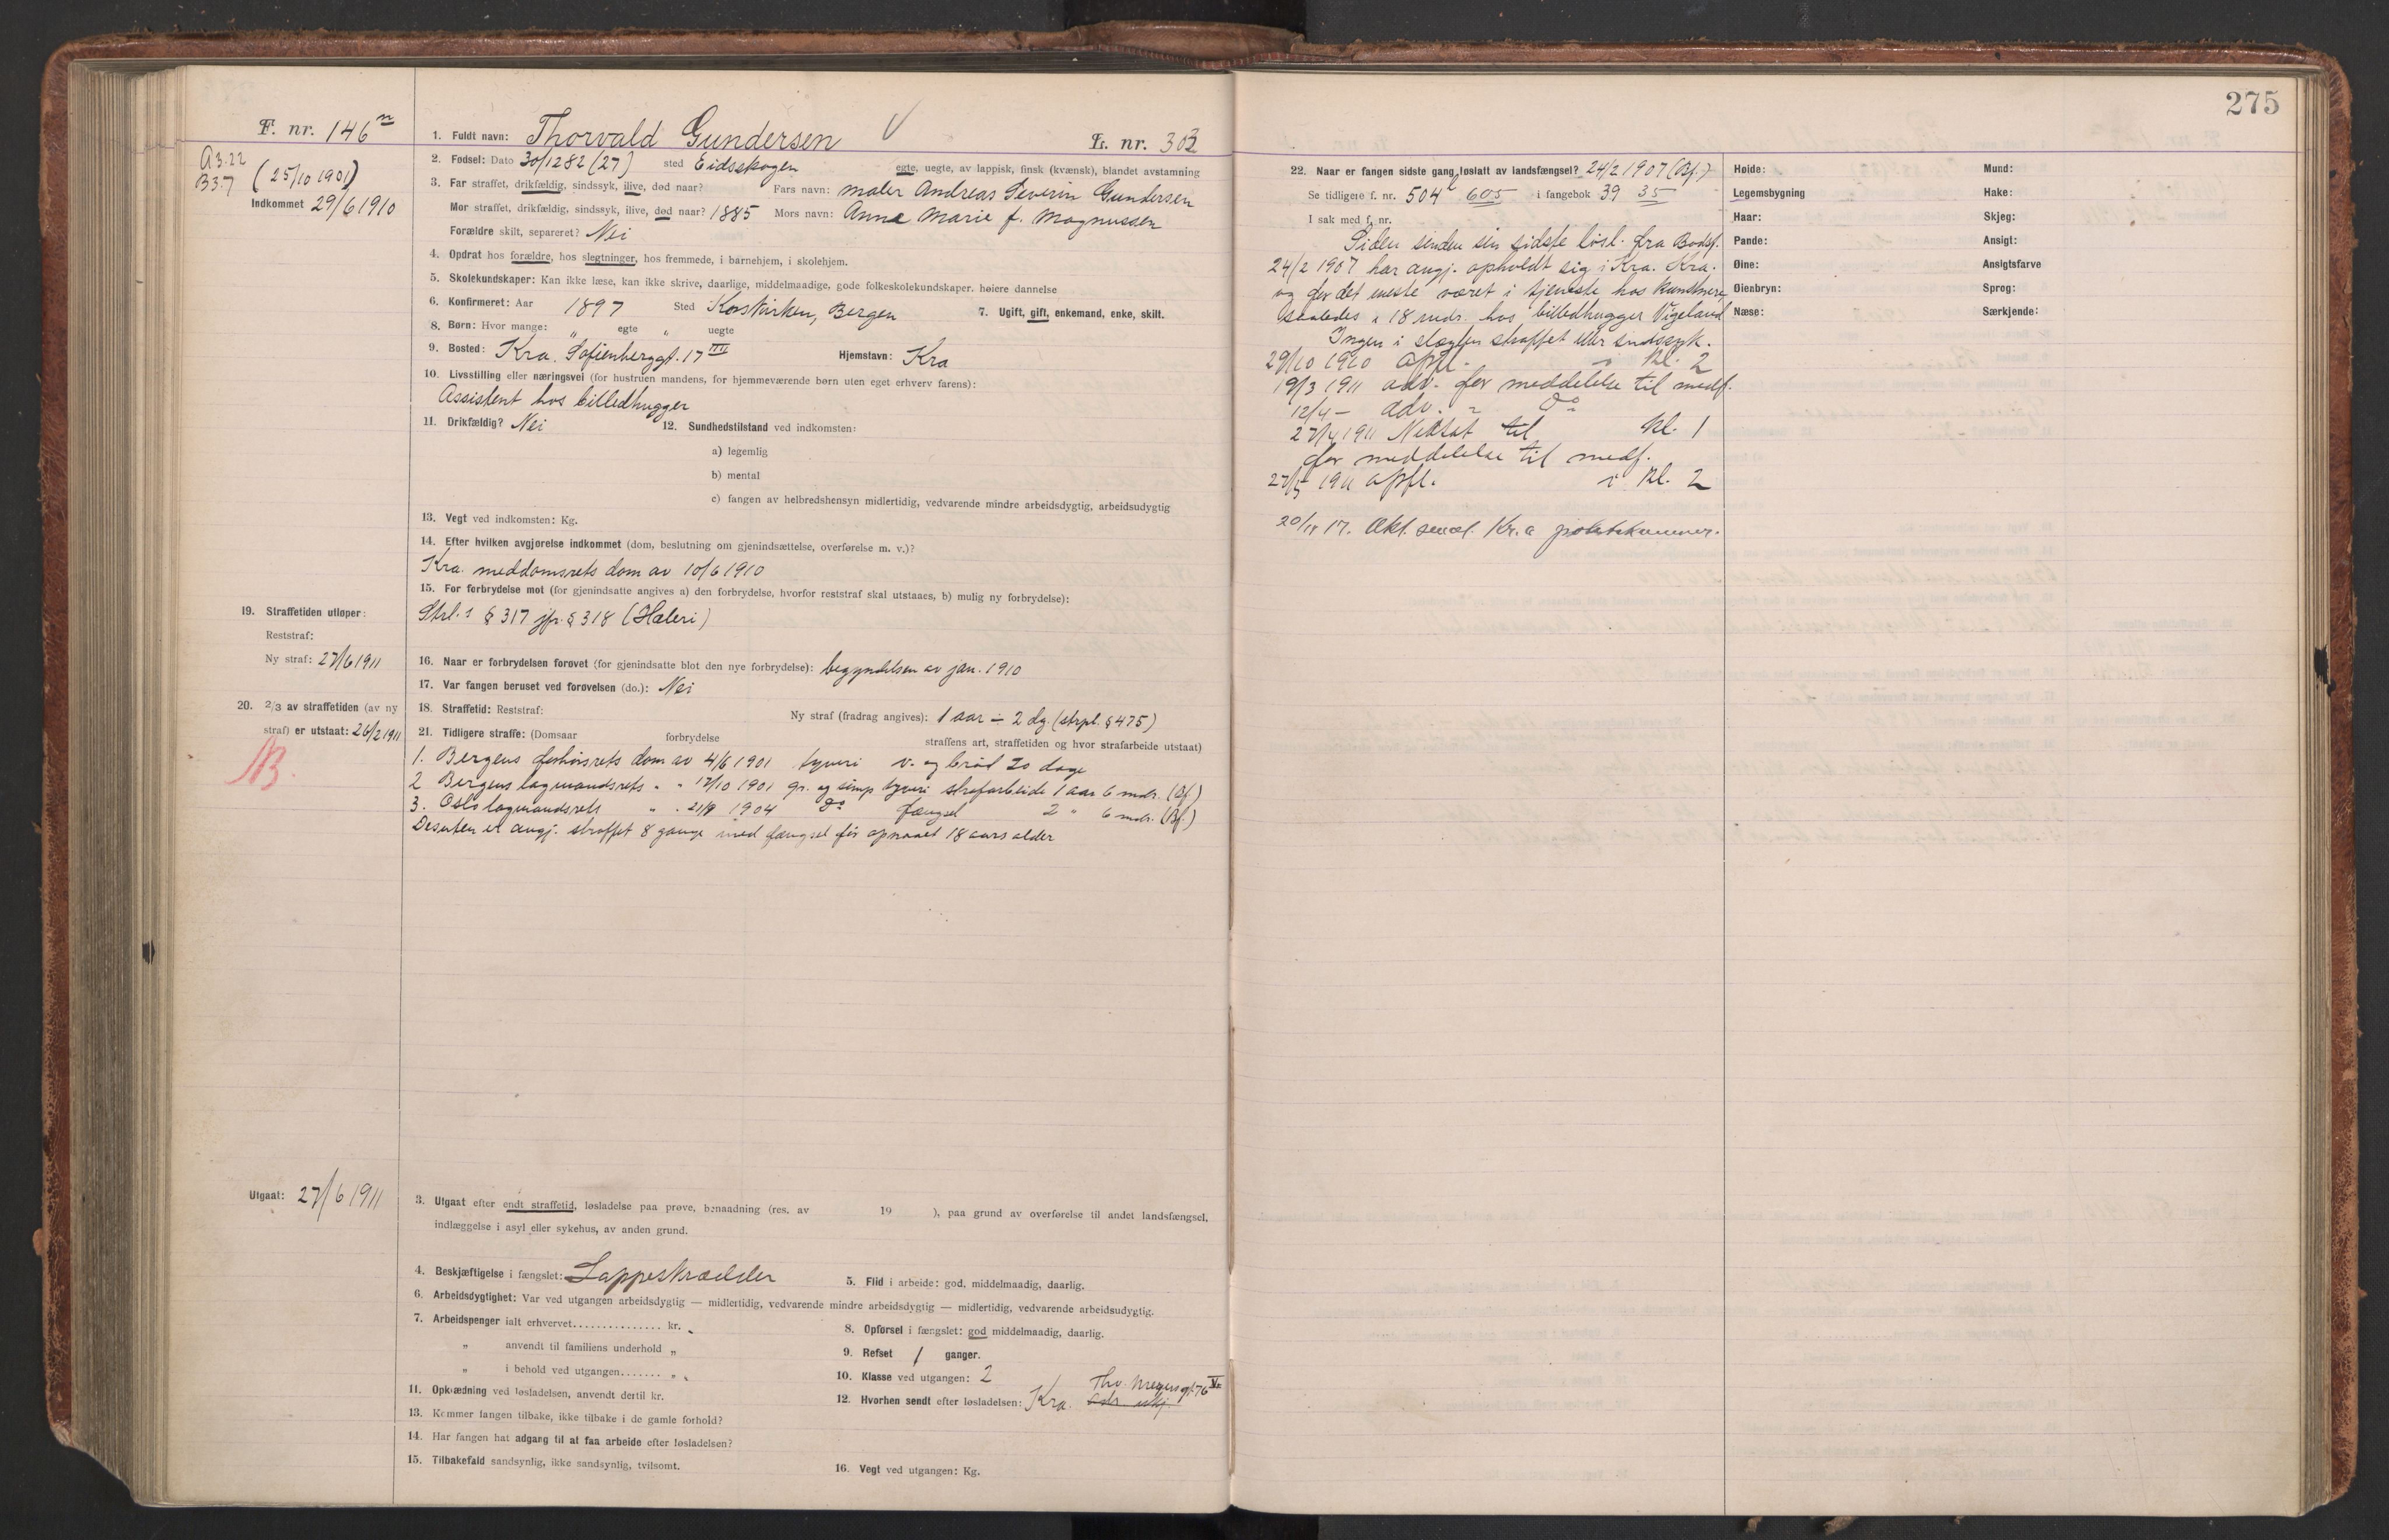 275
F. nr. 146 n
1. Fuldt navn: Thorvald Gundersen V
L. nr. 303
A3.22
B3.7 (25/10 1901)
Indkommet 29/6 1910
2. Fødsel: Dato 30/12 82 (27) sted Eidsskogen egte, uegte, av lappisk, finsk (kvænsk), blandet avstamning
3. Far straffet, drikfældig, sindssyk, ilive, død naar? Fars navn: maler Andreas Severin Gundersen
Mor straffet, drikfældig, sindssyk, ilive, død naar? 1885 Mors navn: Anna Marie f. Magnussen
Forældre skilt, separeret? Nei
4. Opdrat hos forældre, hos slegtninger, hos fremmede, i barnehjem, i skolehjem.
5. Skolekundskaper: Kan ikke læse, kan ikke skrive, daarlige, middelmaadige, gode folkeskolekundskaper. høiere dannelse
6. Konfirmeret: Aar 1897 Sted Korskirken, Bergen 7. Ugift, gift, enkemand, enke, skilt.
8. Børn: Hvor mange: " egte " uegte
9. Bosted: Kra. Sofienberggt. 17 III Hjemstavn: Kra
10. Livsstilling eller næringsvei (for hustruen mandens, for hjemmeværende børn uten eget erhverv farens):
Assistent hos billedhugger
11. Drikfældig? Nei 12. Sundhedstilstand ved indkomsten:
a) legemlig
b) mental
c) fangen av helbredshensyn midlertidig, vedvarende mindre arbeidsdygtig, arbeidsudygtig
13. Vegt ved indkomsten: Kg.
14. Efter hvilken avgjørelse indkommet (dom, beslutning om gjenindsættelse, overførelse m. v.)?
Kra. meddomsrets dom av 10/6 1910
15. For forbrydelse mot (for gjenindsatte angives a) den forbrydelse, hvorfor reststraf skal utstaaes, b) mulig ny forbrydelse):
Strl. § 317 jfr. § 318 (Hæleri)
19. Straffetiden utløper:
Reststraf:
Ny straf: 27/6 1911
16. Naar er forbrydelsen forøvet (for gjenindsatte blot den nye forbrydelse): begyndelsen av jan. 1910
17. Var fangen beruset ved forøvelsen (do.): Nei
20. 2/3 av straffetiden (av ny
straf) er utstaat: 26/2 1911
18. Straffetid: Reststraf: Ny straf (fradrag angives): 1 aar ÷ 2 dg. (strpl. § 475)
21. Tidligere straffe: (Domsaar forbrydelse straffens art, straffetiden og hvor strafarbeide utstaat)
1. Bergens forhørsrets dom av 4/6 1901 tyveri v. og brød 20 dage
2 Bergens lagmandsrets " " 17/10 1901 gr. og simp tyveri strafarbeide 1 aar 6 mdr. (Bf)
3. Oslo lagmandsrets " " 21/9 1904 do fængsel 2 " 6 mdr. (Bf.)
Desuten er angj. straffet 8 gange med fængsel før opnaaet 18 aars alder
Utgaat: 27/6 1911
3. Utgaat efter endt straffetid, løsladelse paa prøve, benaadning (res. av 19 ), paa grund av overførelse til andet landsfængsel,
indlæggelse i asyl eller sykehus, av anden grund.
4. Beskjæftigelse i fængslet: Lappeskrædder 5. Flid i arbeide: god, middelmaadig, daarlig.
6. Arbeidsdygtighet: Var ved utgangen arbeidsdygtig — midlertidig, vedvarende mindre arbeidsdygtig — midlertidig, vedvarende arbeidsudygtig.
7. Arbeidspenger ialt erhvervet............... kr. "
8. Opførsel i fængslet: god middelmaadig, daarlig.
" anvendt til familiens underhold "
9. Refset 1 ganger.
" i behold ved utgangen....... " "
10. Klasse ved utgangen: 2
11. Opklædning ved løsladelsen, anvendt dertil kr.
12. Hvorhen sendt efter løsladelsen: Kra. Thv. Meyersgt 76 V
adr. ubkj.
13. Kommer fangen tilbake, ikke tilbake i de gamle forhold?
14. Har fangen hat adgang til at faa arbeide efter løsladelsen?
15. Tilbakefald sandsynlig, ikke sandsynlig, tvilsomt.
16. Vegt ved utgangen: Kg.
22. Naar er fangen sidste gang løslatt av landsfængsel? 24/2 1907 (Bf.)
Se tidligere f. nr. 504 l 605 i fangebok 39 35
I sak med f. nr.
Siden sin sidste løsl. fra Bodsf.
24/2 1907 har angj. opholdt sig i Kra. Kra.
og for det meste været i tjeneste hos kunstnere
saaledes i 18 mdr. hos billedhugger Vigeland
Ingen i slægten straffet eller sindssyk.
29/10 1910 opfl. i Kl. 2
19/3 1911 adv. for meddelelse til medf.
12/4 – adv. " do
27/4 1911 Nedsat til Kl. 1
for meddelelse til medf.
27/5 1911 opfl. i Kl. 2
20/11 17. Akt. Kr.a politikammer.
Høide:
Legemsbygning
Haar:
Pande:
Øine:
Øienbryn:
Næse:
Mund:
Hake:
Skjeg:
Ansigt:
Ansigtsfarve
Sprog:
Særkjende: